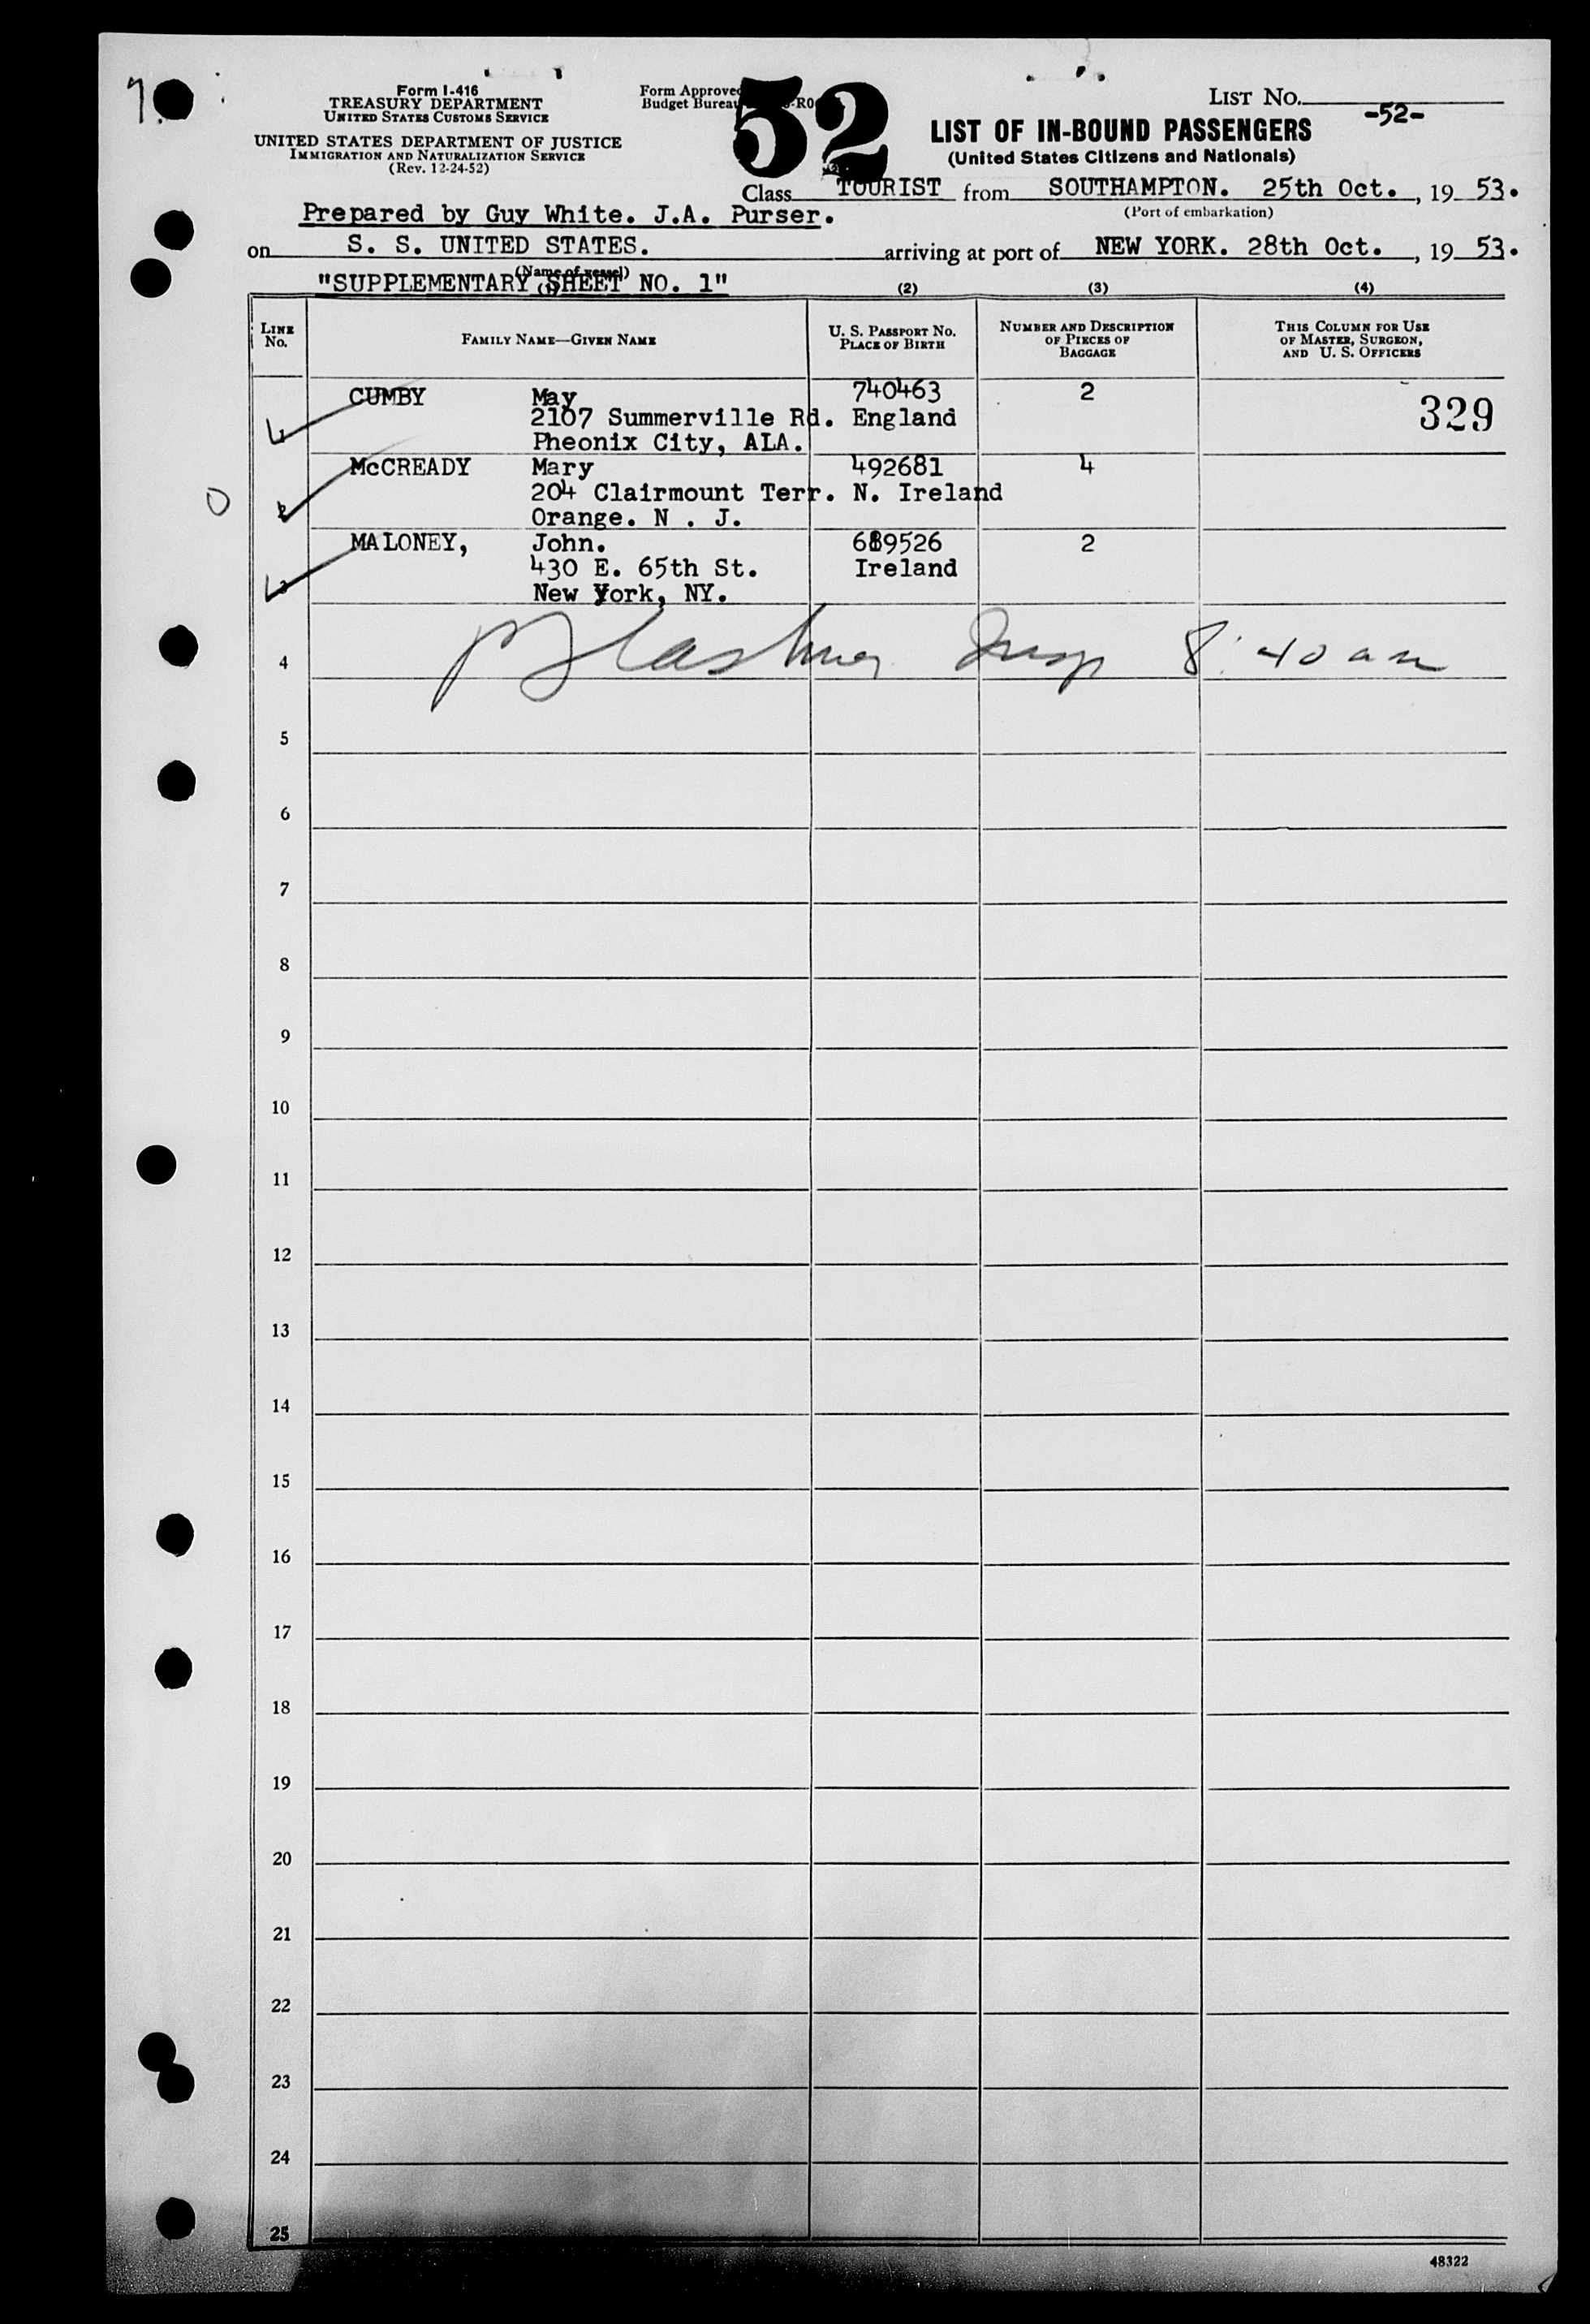 Form I-416
TREASURY DEPARTMENT
UNITED STATES CUSTOMS SERVICE
UNITED STATES DEPARTMENT OF JUSTICE
IMMIGRATION AND NATURALIZATION SERVICE
(Rev. 12-24-52)
Form Approved
Budget Bureau
52
LIST NO.
-52-
LIST OF IN-BOUND PASSENGERS
(United States Citizens and Nationals)
Class TOURIST from SOUTHAMPTON. 25th Oct. , 19 53.
(Port of embarkation)
Prepared by Guy White. J.A. Purser.
on S. S. UNITED STATES. arriving at port of NEW YORK. 28th Oct. , 19 53.
(Name of vessel)
"SUPPLEMENTARY SHEET NO. 1"
(1) (2) (3) (4)
LINE NO. FAMILY NAME—GIVEN NAME U. S. PASSPORT NO. PLACE OF BIRTH NUMBER AND DESCRIPTION OF PIECES OF BAGGAGE THIS COLUMN FOR USE OF MASTER, SURGEON, AND U. S. OFFICERS
CUMBY May 740463 2 329
1 2107 Summerville Rd. England
Pheonix City, ALA.
McCREADY Mary 492681 4
2 204 Clairmount Terr. N. Ireland
Orange. N . J.
MALONEY, John. 689526 2
3 430 E. 65th St. Ireland
New York, NY.
Insp 8:40 am
4
5
6
7
8
9
10
11
12
13
14
15
16
17
18
19
20
21
22
23
24
25
48322